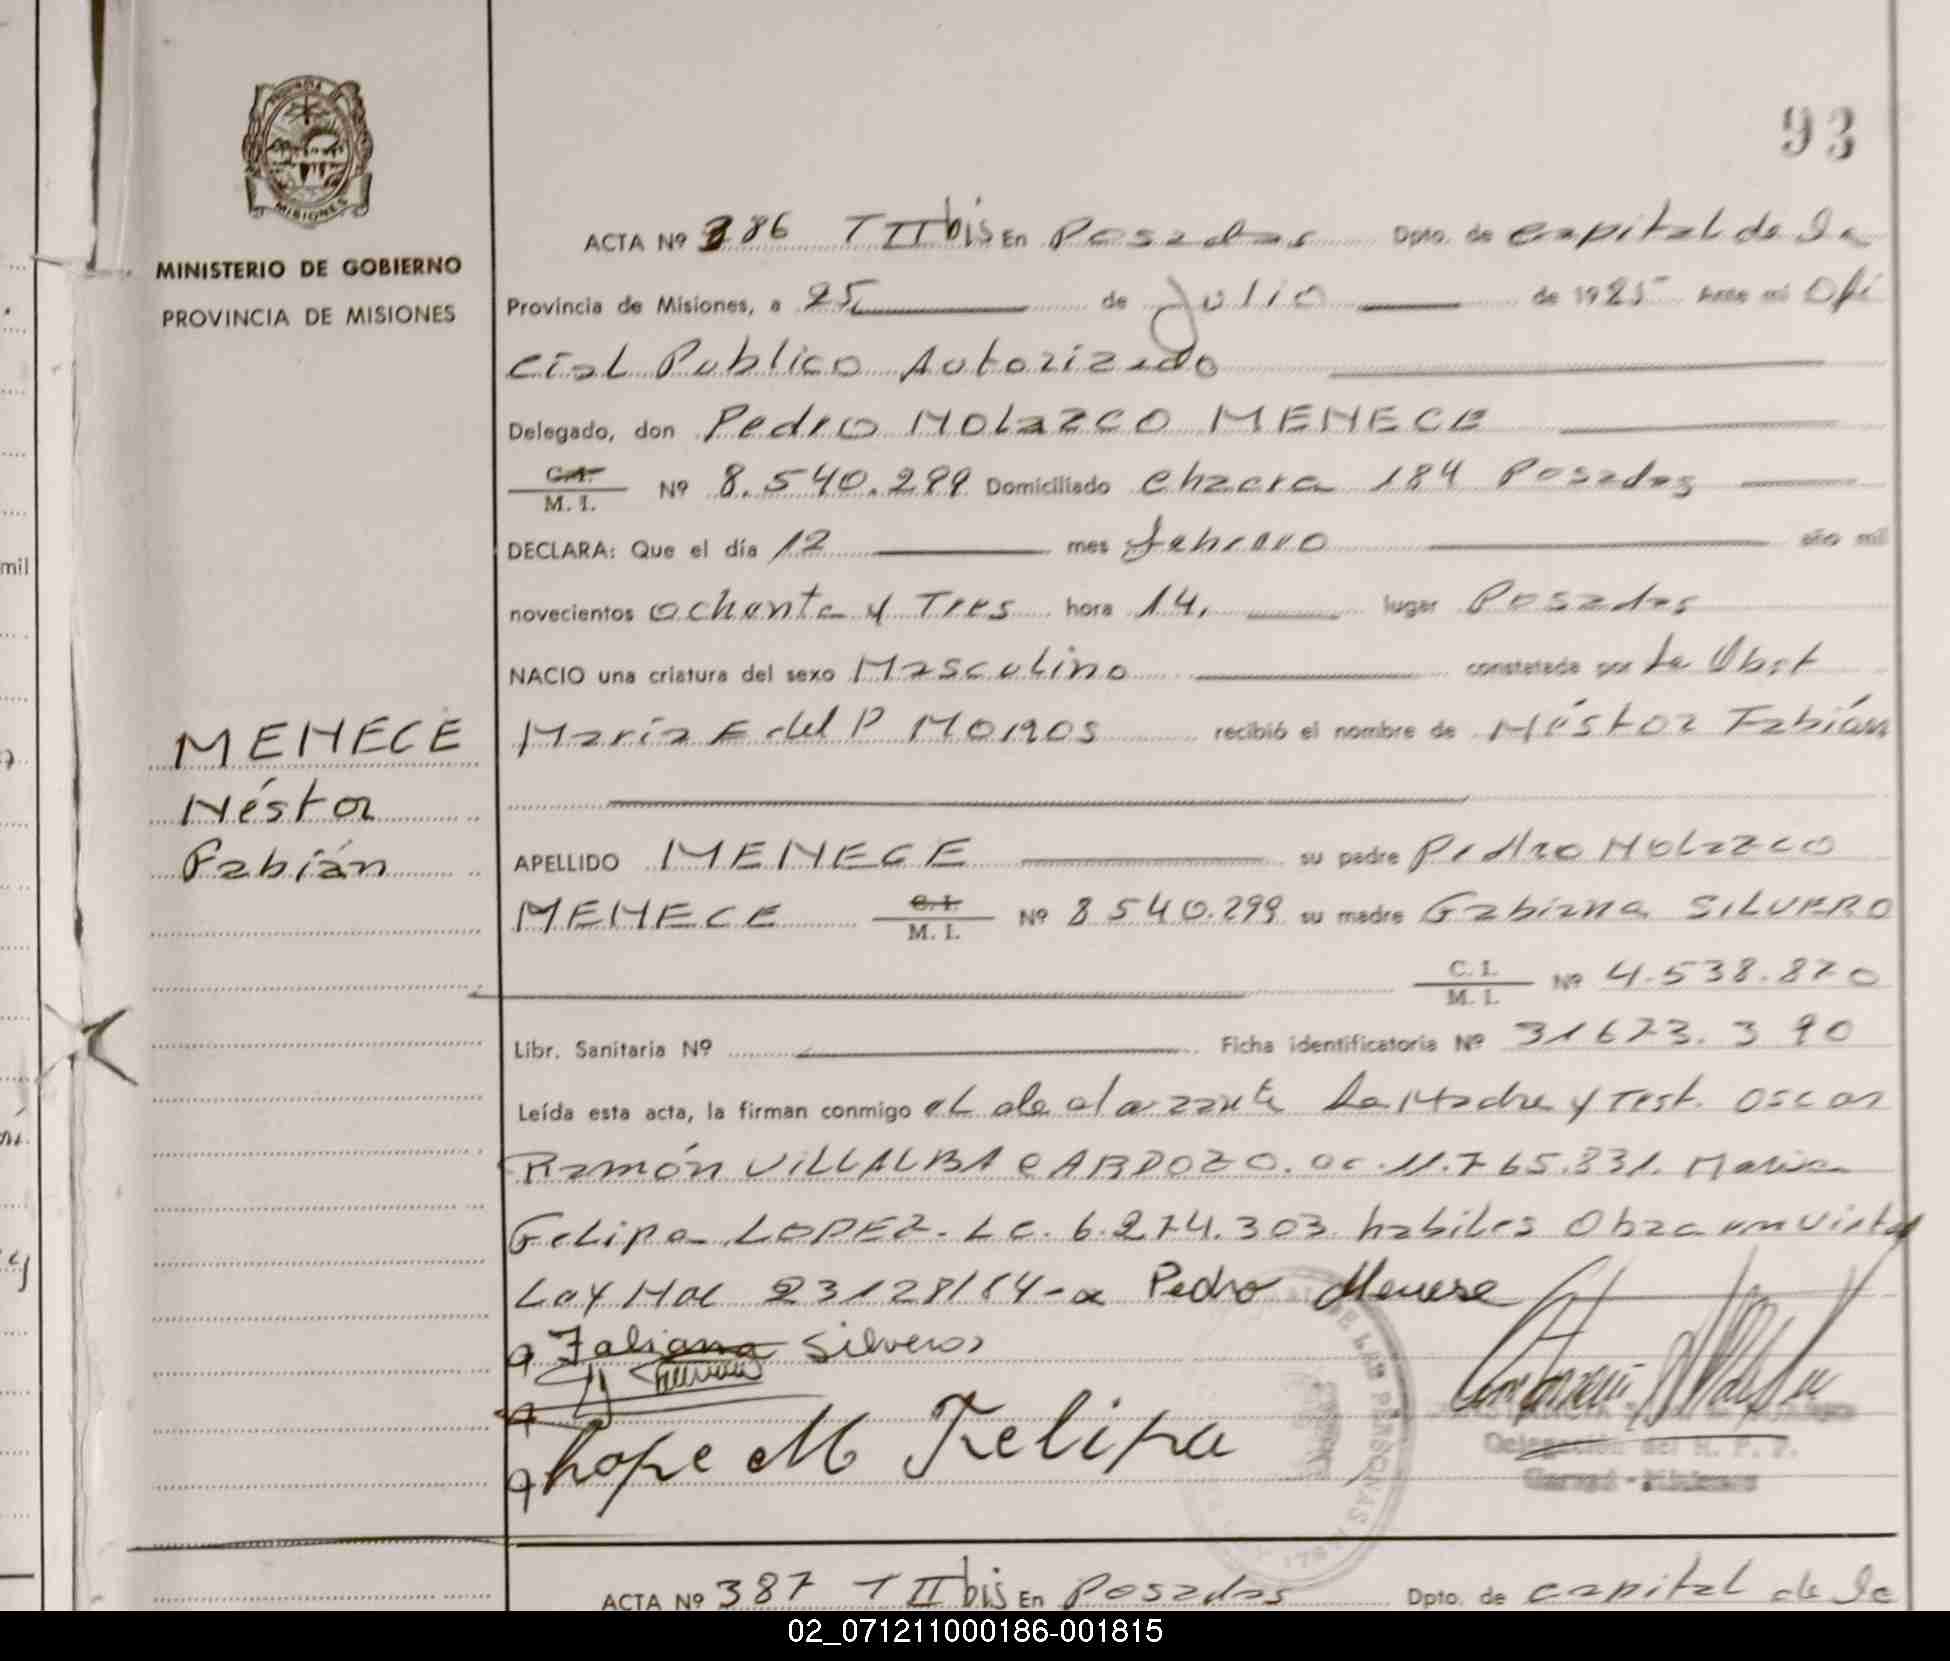 93
MINISTERIO DE GOBIERNO
PROVINCIA DE MISIONES
MISIONES
ACTA Nº 386 T II bis En Posadas Dpto. de capital de la
Provincia de Misiones, a 25 de Julio de 1985 Ante mi Ofi
cial Publico Autorizado
Delegado, don Pedro NOLAZCO MENECE
C.I. M. I. Nº 8.540.299 Domiciliado Chacra 184 Posadas
DECLARA: Que el día 12 mes febrero año mil
novecientos ochenta y Tres hora 14, lugar Posadas
NACIO una criatura del sexo Masculino constatada por La Obst
María E del P Mongos recibió el nombre de Néstor Fabián
MENECE
Néstor
Fabián
APELLIDO MENECE su padre Pedro NOLAZCO
MENECE C. I. M. I. Nº 8540.299 su madre Gabiana SILVERO
C. I. M. I. Nº 4.538.870
Libr. Sanitaria Nº Ficha identificatoria Nº 31673.390
Leída esta acta, la firman conmigo el declarante La Madre y Test. Oscar
Ramón VILLALBA CARDOZO. 11.765.831. Maria
Felipa LOPEZ. LC. 6.274.303 habiles Obra en virtud
Ley Nac 23128/84
Pedro Menese
Silvero
Lope M Felipa
DE LAS PERSONAS
Delegación del R. P. P.
ACTA Nº 387 T II bis En Posadas Dpto. de capital de la
mil
02_071211000186-001815